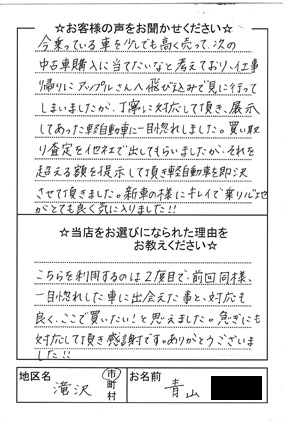 ☆お客様の声をお聞かせください☆
今乗っている車を少しでも高く売って、次の
中古車購入に当てたいなと考えており、仕事
帰りにアップルさんへ飛び込みで見に行って
しまいましたが、丁寧に対応して頂き、展示
してあった軽自動車に一目惚れしました。買い取
り査定を他社で出してもらいましたが、それを
超える額を提示して頂き軽自動車を即決
させて頂きました。新車の様にキレイで乗り心地
がとても良く気に入りました!!
☆当店をお選びになられた理由を
お教えください☆
こちらを利用するのは2度目で、前回同様、
一目惚れした車に出会えた事と、対応も
良く、ここで買いたい!と思えました。急ぎにも
対応して頂き感謝です。ありがとうございま
した!!
地区名 滝沢 市町村 お名前 青山